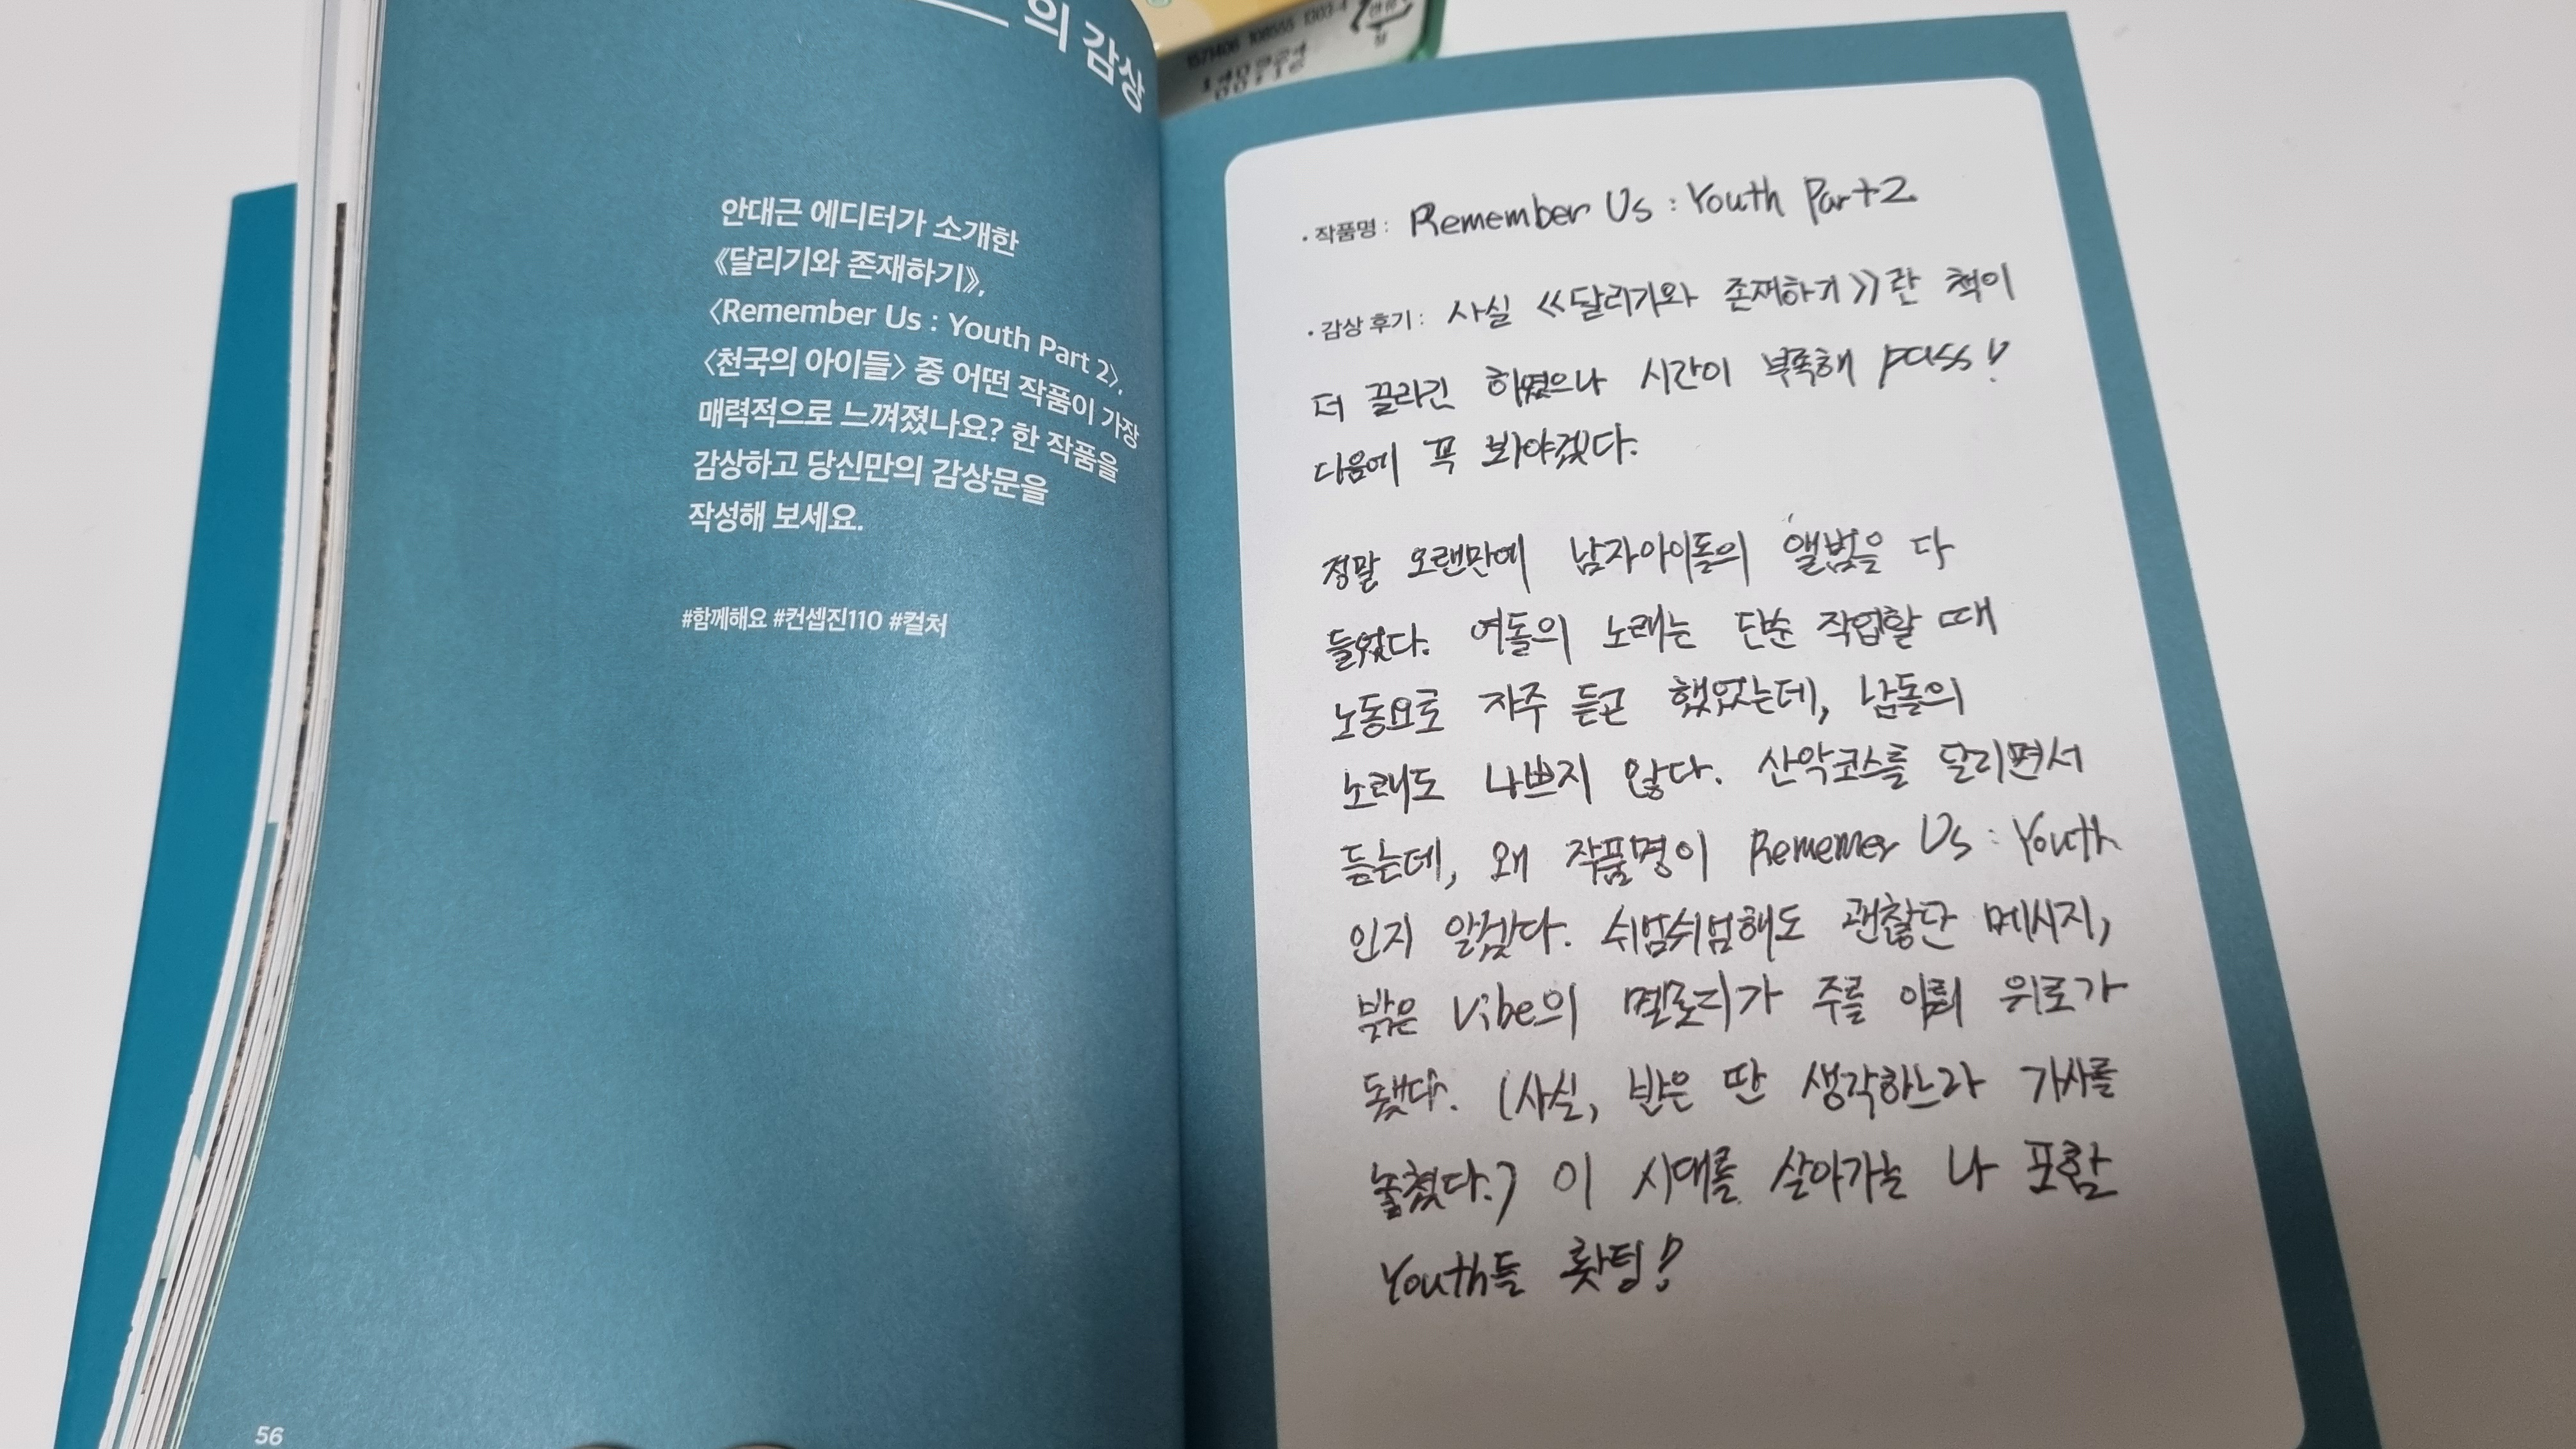 의 감상
안대근 에디터가 소개한
《달리기와 존재하기》,
〈Remember Us : Youth Part 2〉,
〈천국의 아이들〉 중 어떤 작품이 가장
매력적으로 느껴졌나요? 한 작품을
감상하고 당신만의 감상문을
작성해 보세요.
#함께해요 #컨셉진110 #컬처
56
· 작품명 : Remember Us : Youth Part 2
· 감상 후기 : 사실 《달리기와 존재하기》란 책이
더 끌리긴 하였으나 시간이 부족해 pass!
다음에 꼭 봐야겠다.
정말 오랜만에 남자아이돌의 앨범을 다
들었다. 여돌의 노래는 단순 작업할 때
노동요로 자주 듣곤 했었는데, 남돌의
노래도 나쁘지 않다. 산악코스를 달리면서
듣는데, 왜 작품명이 Rememer Us : Youth
인지 알겠다. 쉬엄쉬엄해도 괜찮단 메시지,
밝은 Vibe의 멜로디가 주를 이뤄 위로가
됐다. (사실, 반은 딴 생각하느라 가사를
놓쳤다.) 이 시대를 살아가는 나 포함
Youth들 홧팅!